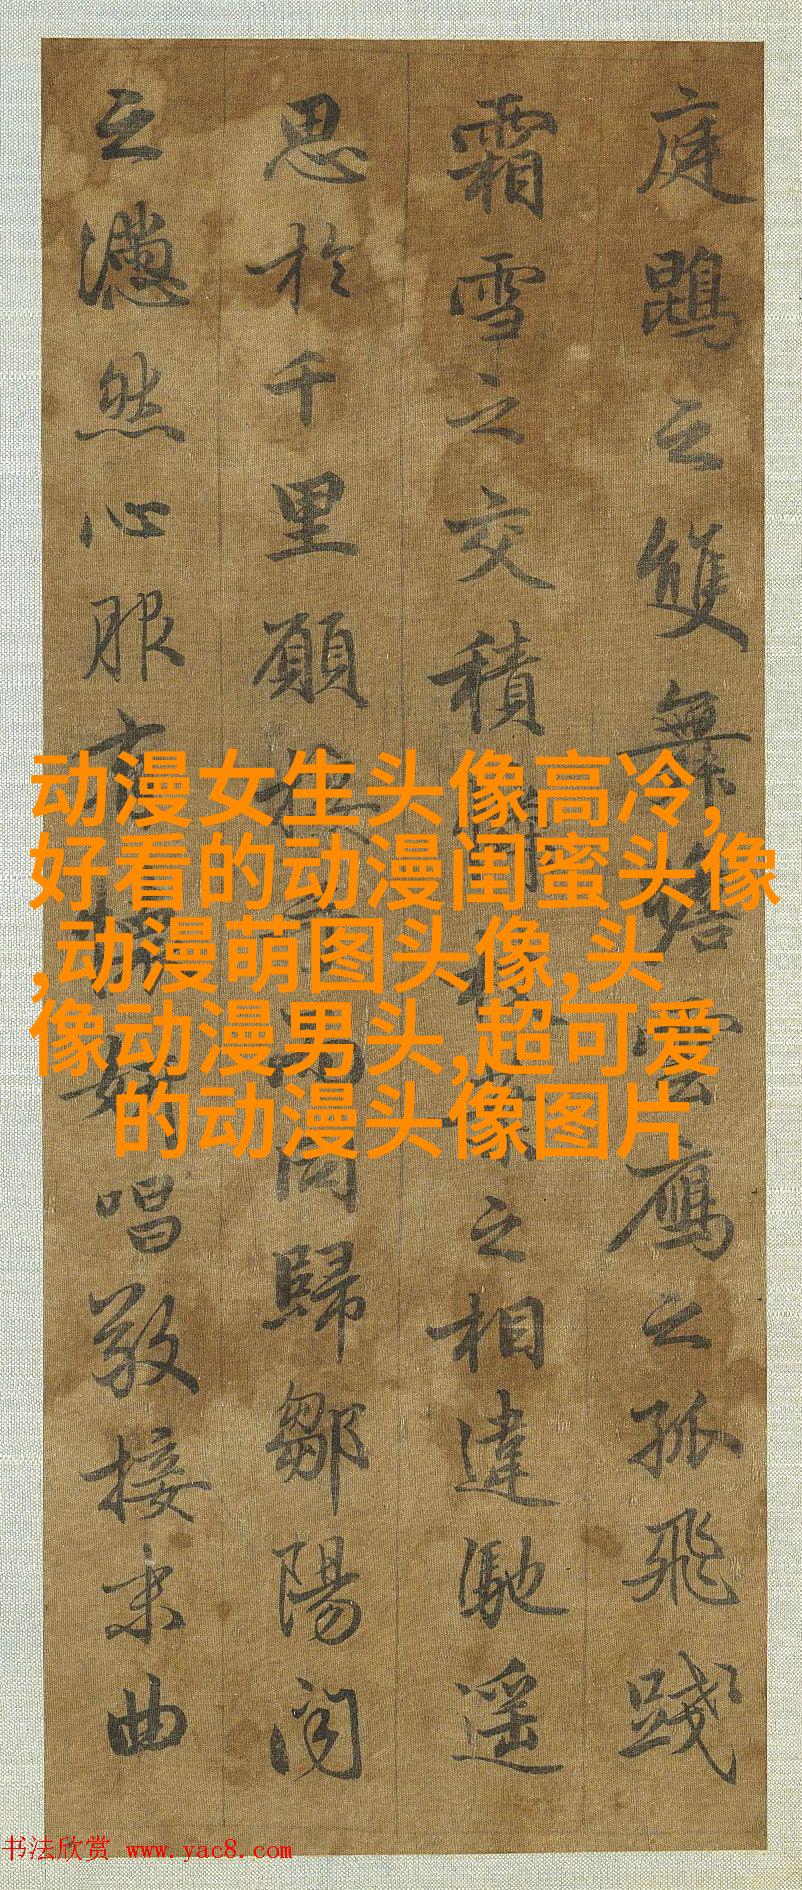 庭鵾之雙舞瞻雲鴈之孤飛踐
霜雪之交積之相違馳遥
思於千里願同歸鄒陽聞
之懣然心服有妍唱敬接末曲
动漫女生头像高冷,
好看的动漫闺蜜头像
,动漫萌图头像,头
像动漫男头,超可爱
的动漫头像图片
书法欣赏 www.yac8.com